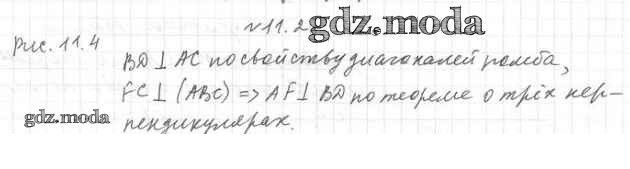 №11.2
gdz.moda
рис. 11.4
BD ⊥ AC по свойству диагоналей ромба,
FC ⊥ (ABC) => AF ⊥ BD по теореме о трёх пер-
gdz.moda
пендикулярах.